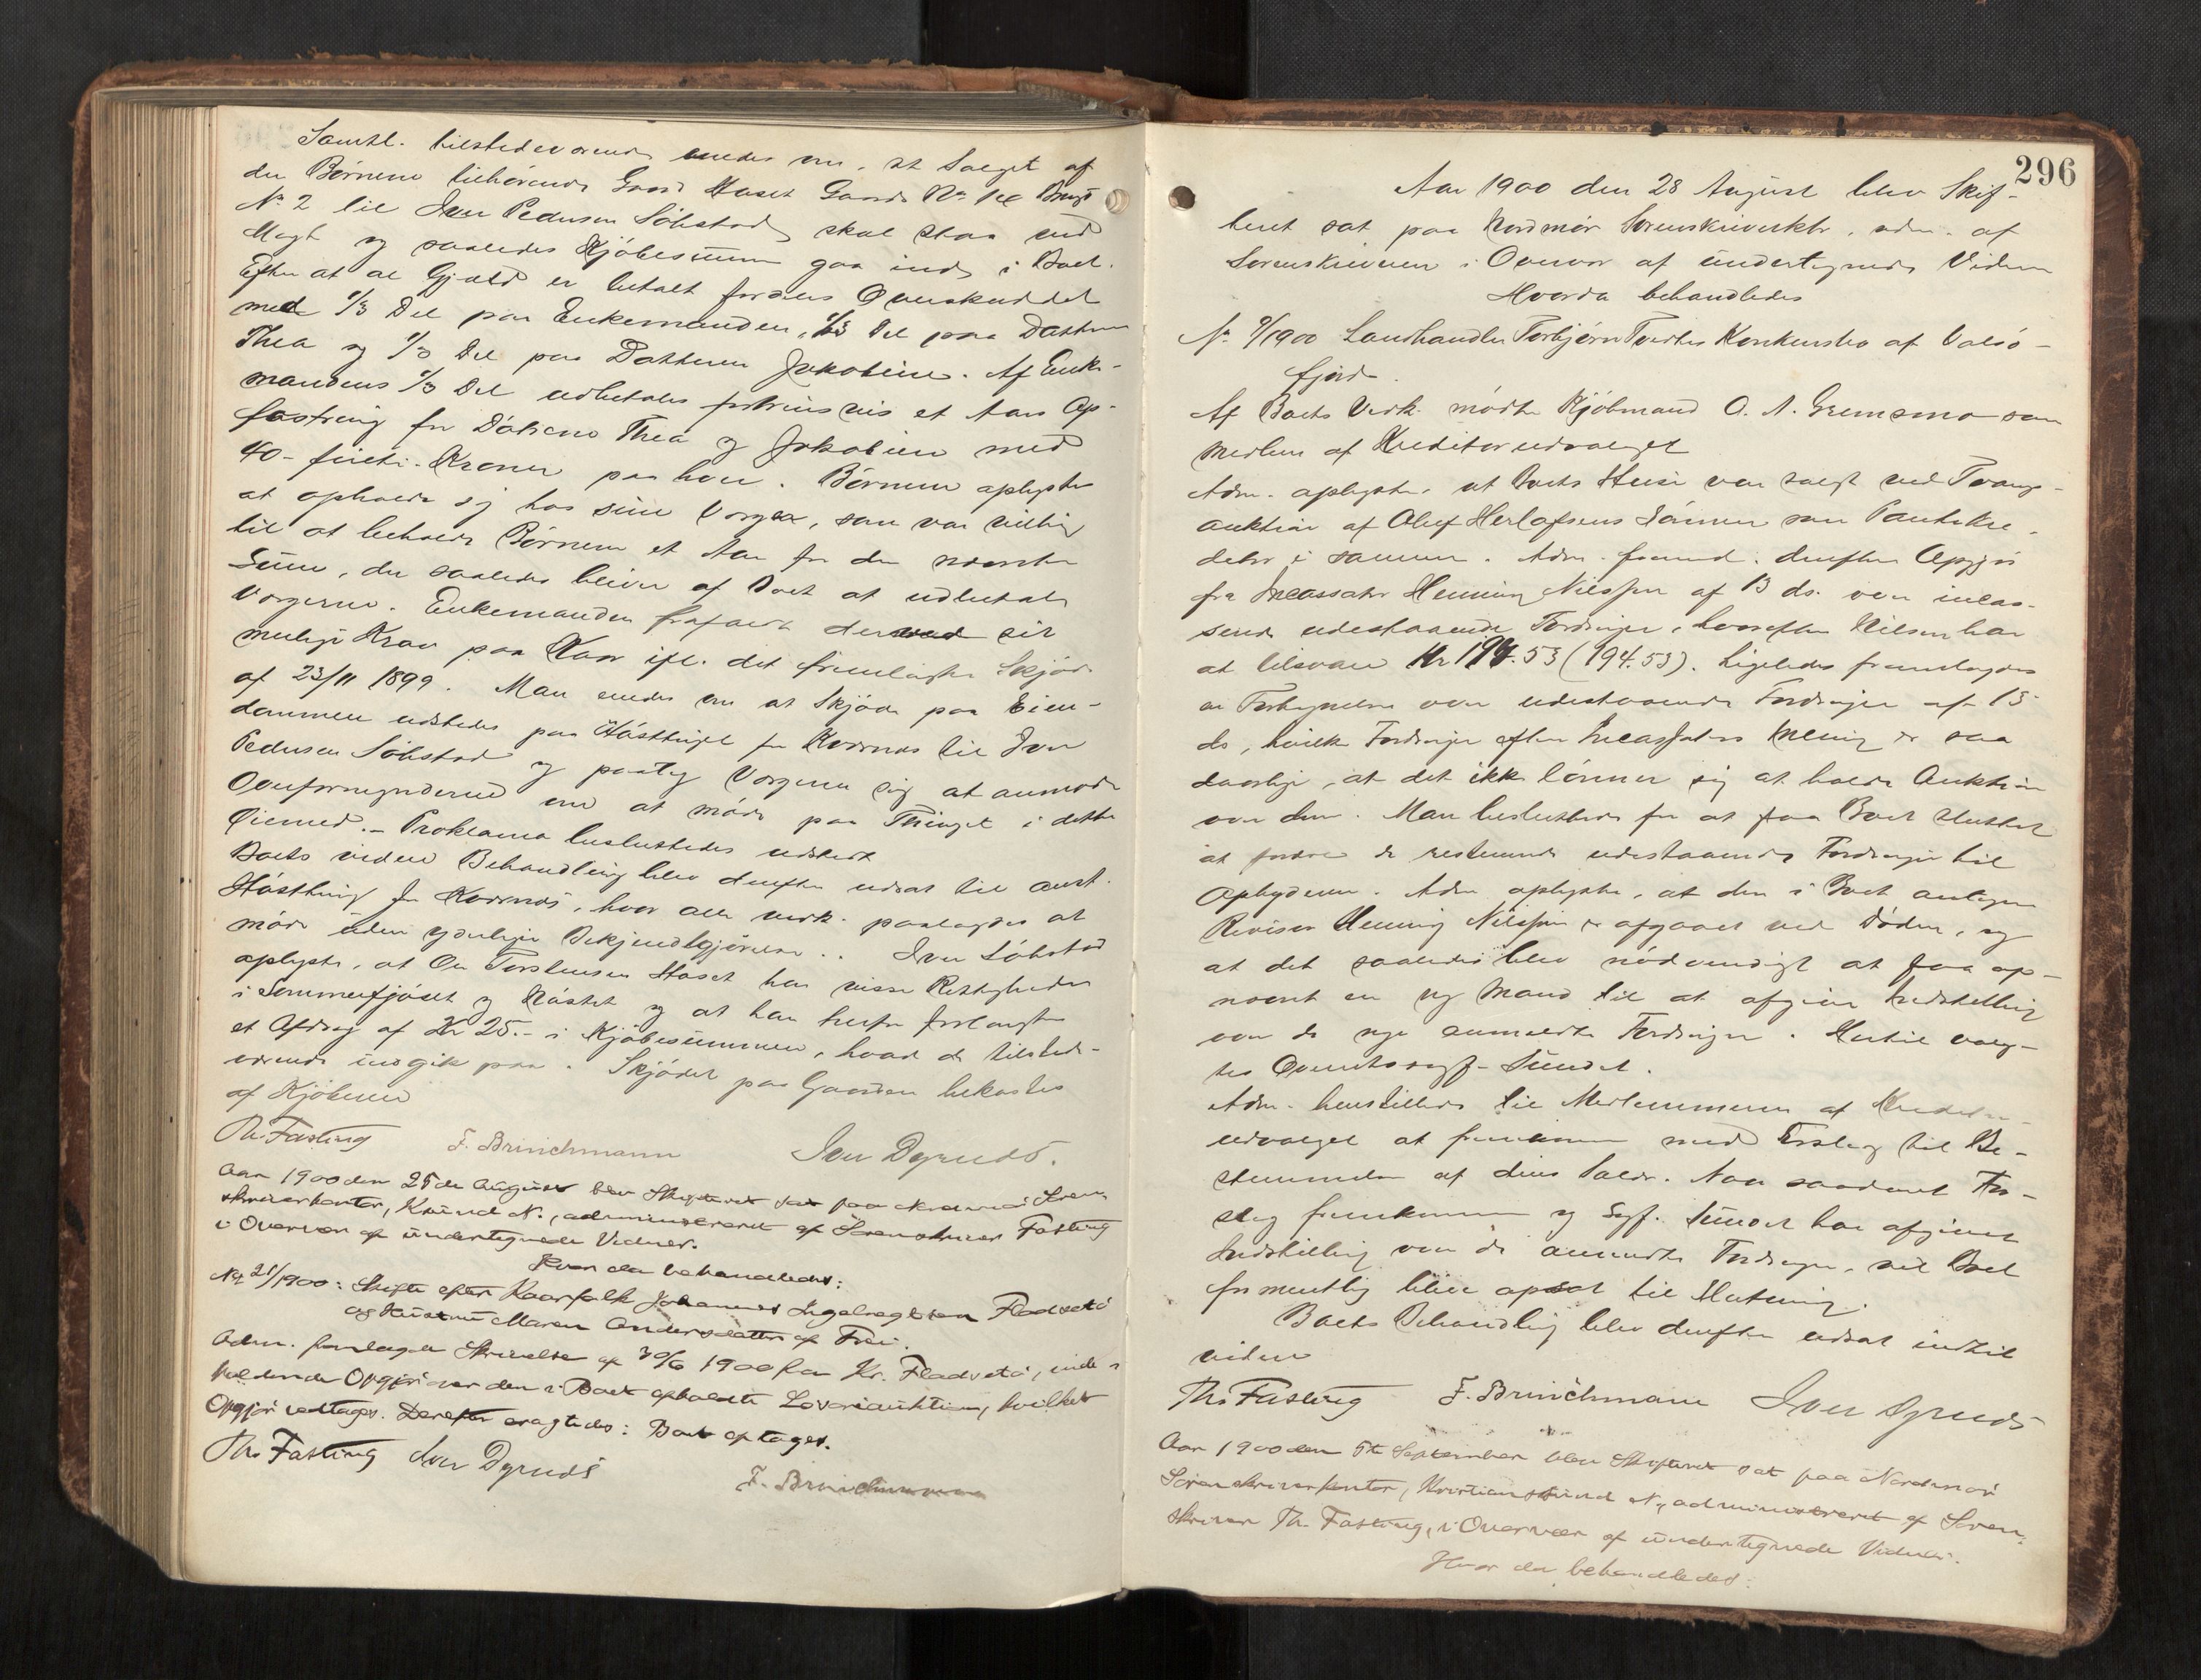 Samtl. tilstedeværende enedes om, at Salget af
den Børnene tilhørende Gaard Haset Gaards No Brugs
No 2 til Iver Pedersen Søbstad skal staa ved
Magt og saaledes Kjøbesummen gaa ind i Boet.
Efter at al Gjæld er betalt fordeles Overskuddet
med 1/3 Del paa Enkemanden, 1/3 Del paa Datteren
Thea og 1/3 Del paa Datteren Jakobine. Af Enke-
mandens 1/3 Del udbetales et Aars Op-
fostring for Døtrene Thea og Jakobine med
40 - firti - Kroner paa hver. Børnene oplystes
at opholde sig hos sine Verger, som var villig
til at beholde Børnene et Aar for den nævnte
Sum, der saaledes bliver af Boet at udbetale
Vergerne. Enkemanden frafaldt derved sit
mulige Krav paa Kaar ifl. det fremlagte Skjøde
af 23/11 1899. Man enedes om at Skjøde paa Eien-
dommen udstedes paa Høstthinget for Kvernes til Iver
Pedersen Søbstad og paatog Vergerne sig at anmode
Overformynderne om at møde paa Thinget i dette
Øiemed. - Proklama besluttedes udstedt
Boets videre Behandling blev derefter udsat til anst.
Høstthing for Kvernes, hvor alle vedk. paalagdes at
møde uden yderligere Bekjendtgjørelse. Iver Søbstad
oplyste, at Ole Torstensen Haset har visse Rettigheder
i Sommerfjøset og Nøstet og at han herfor forlangte
et Afdrag af Kr 25.- i Kjøbesummen, hvad de tilstede-
værende indgik paa. Skjødet paa Gaarden bekostes
af Kjøberen
Th. Fasting F. Brinchmann Iver Dyrnds.
Aar 1900 den 25de August blev Skifteret sat paa Nordmør Soren-
skriverkontor, Kr.sund N., administreret af Sorenskriver Fasting
i Overvær af undertegnede Vidner.
Hvor da behandledes:
No 21/1900: Skifte efter Kaarfolk Johannes Ingebregtsen Fladsetø
og Hustru Maren Andersdatter af Frei.
Adm. fremlagde Skrivelse af 30/6 1900 fra Kr. Fladsetø, inde-
holdende Opgjør over den i Boet afholdte Løsøreauktion, hvilket
Opgjør vedtages. Derefter eragtedes: Boet optages.
Th. Fasting Iver Dyrnds
F. Brinchmann
296
Aar 1900 den 28 August blev Skif-
teret sat paa Nordmør Sorenskriverktr. adm. af
Sorenskriveren i Overvær af undertegnede Vidner
Hvorda behandledes
No 9/1900 Landhandler Torbjørn Tveites Konkursbo af Valsø-
fjord.
Af Boets Vedk. mødte Kjøbmand O. A. Gremsmo som
Medlem af Kreditorudvalget
Adm. oplyste, at Boets Huse var solgt ved Tvangs-
auktion af Oluf Herlofsens Sønner som Pantekre-
ditor i samme. Adm. fremld. derefter Opgjør
fra Incassator Henning Nilssen af 13 ds. over incas-
serede udestaaende Fordringer, hvorefter Nilsen har
at tilsvare Kr 194.53 (194.53). Ligeledes fremlagdes
en Fortegnelse over udestaaende Fordringer af 15
ds, hvilke Fordringer efter Incassators Mening er saa
daarlige, at det ikke lønner sig at holde Auktion
over dem. Man besluttede for at faa Boet sluttet
at de resterende udestaaende Fordringer til
Opbydelse. Adm oplyste, at den i Boet antagne
Revisor Henning Nilssen er afgaaet ved Døden, og
at det saaledes blev nødvendigt at faa op-
nævnt en ny Mand til at afgive Indstilling
over de nye anmeldte Fordringer. Hertil valg-
tes Overretssagf. Sundet.
Adm. henstillede til Medlemmerne af Kreditor-
udvalget at fremkomme med Forslag til Be-
stemmelse af dens Salær. Naar saadant For-
slag fremkommer og Sagf. Sundet har afgivet
Indstilling over de anmeldte Fordringer, vil Boet
formentlig blive opsat til Slutning.
Boets Behandling blev derefter udsat indtil
videre
Th. Fasting F. Brinchmann Iver Dyrnds
Aar 1900 den 5te September blev Skifteret sat paa Nordmør
Sorenskriverkontor, Kristiansund N., administreret af Soren-
skriver Th. Fasting, i Overvær af undertegnede Vidner.
Hvor da behandledes: